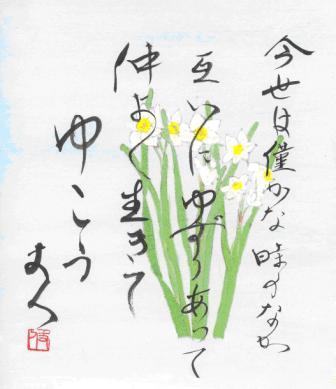 今世は僅かな時のなか
互いにゆずりあって
仲よく生きて
ゆこう